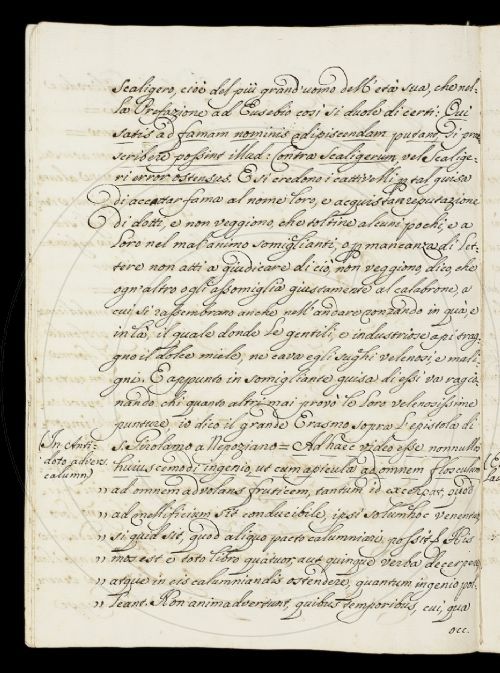 Scaligero, cioè del più grand'uomo dell'età sua, che nel-
la Prefazione ad Eusebio così si duole di certi: Qui
Satis ad famam nominis adipiscendam putant, si prae
scribere possint illud: Contra Scaligerum, vel Scalige-
ri error ostensus. E si credono i cattivelli p tal guisa
di accattar fama al nome loro, e acquistar reputazione
di dotti, e non veggiono, che toltine alcuni pochi, e a
loro nel mal'animo somiglianti, o p mancanza di let-
tere non atti a giudicare di ciò, non veggiono, dico, che
ogn'altro egli assomiglia giustamente al calabrone, a
cui si rassembrano anche nell'andare ronzando in quà, e
in là, il quale donde le gentili, e industriose api trag-
gno il dolce miele, ne cava egli sughi velenosi, e mali-
gni. E appunto in somigliante guisa di essi va ragio-
nando chi quanto altri mai provò le loro velenosissime
punture, io dico il grande Erasmo sopra l'epistola di
S. Girolamo a Nepoziano = Ad haec video esse nonnullo
(In Anti-
doto advers.
calumn)
huiuscemodi ingenio, ut cum apicula ad omnem flosculum
" ad omnem advolans fruticem, tantum id excerpat, quod
" ad mellificium sit conducibile, ipsi solum hoc venentur
" si quid sit, quod aliquo pacto calumniari possit. His
" mos est e toto libro quatuor, aut quinque verba decerpere
" atque in eis calumniandis ostendere, quantum ingenio pol-
" leant. Non animadvertunt, quibus temporibus, cui, qua
occ.